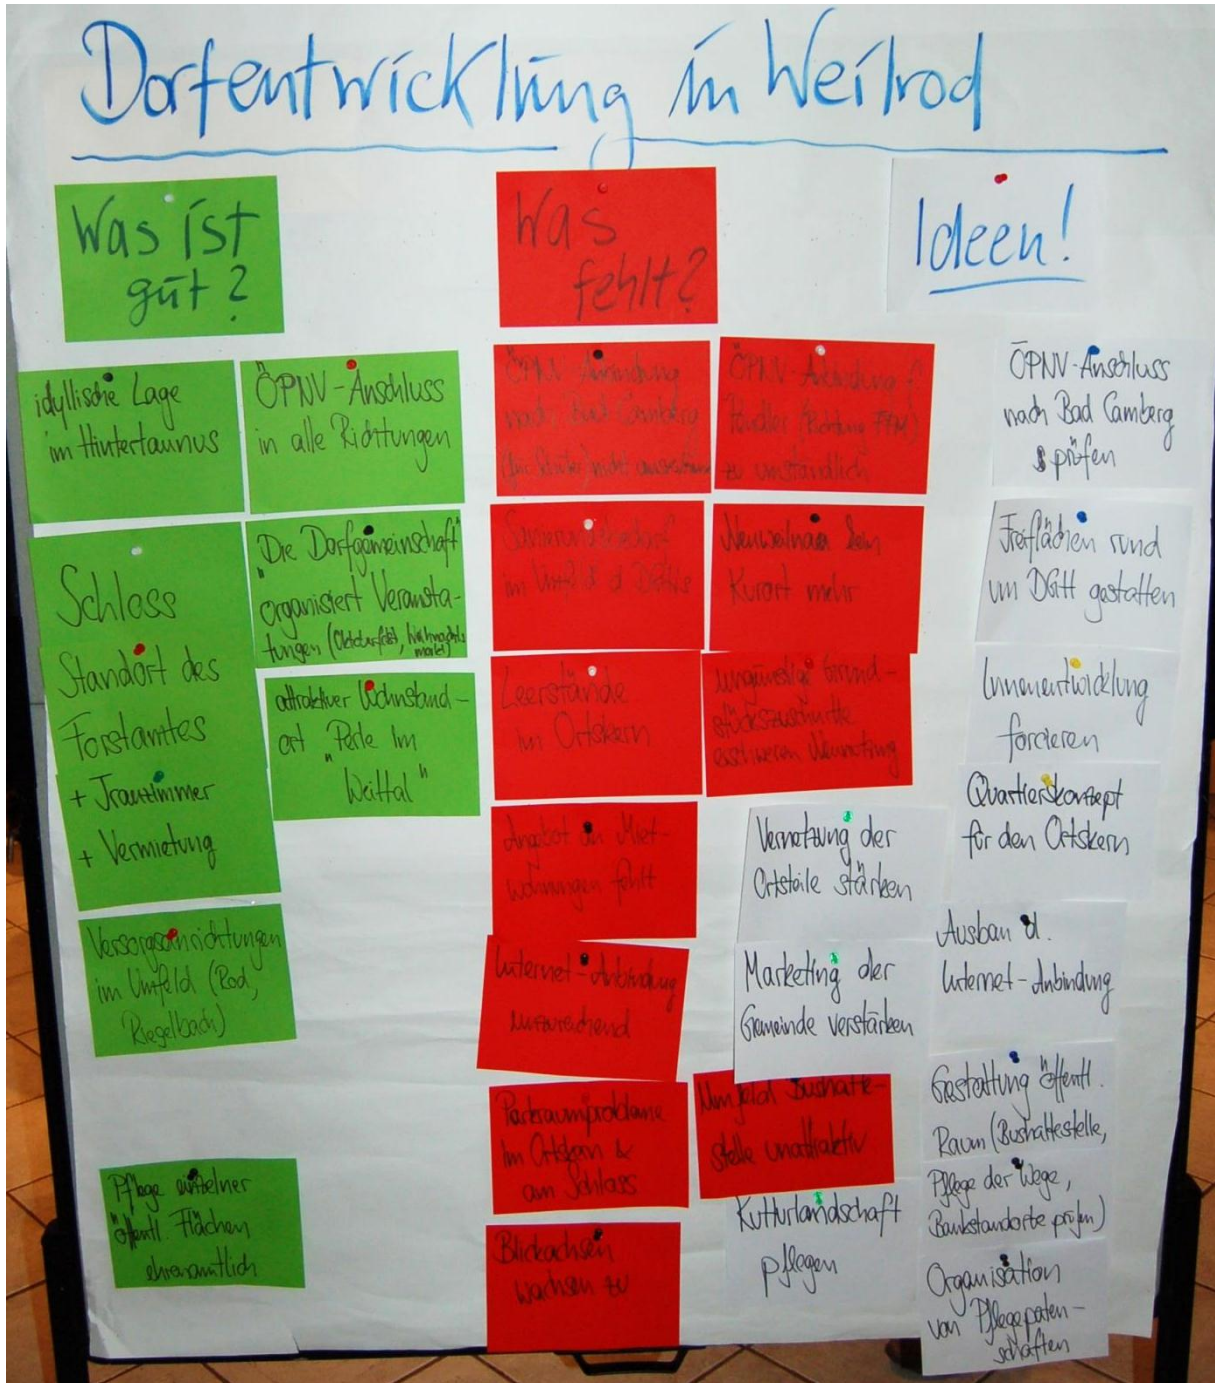 Dorfentwicklung in Weilrod
Was ist
gut?
idyllische Lage
im Hintertaunus
ÖPNV-Anschluss
in alle Richtungen
Schloss
"Die Dorfgemeinschaft"
organisiert Veransta-
tungen (Oktoberfest, Weihnachts
markt)
Standort des
Forstamtes
+ Trauzimmer
+ Vermietung
attraktiver Wohnstand-
ort "Perle im
Weiltal"
im Umfeld (Rod,
Riegelbach)
Pflege einzelner
öffentl. Flächen
ehrenamtlich
Was
fehlt?
ÖPNV-Anbindung
nach Bad Camberg
(für Schüler) nicht
ÖPNV-Anbindung f.
Pendler (Richtung FFM)
zu umständlich
Sanierungsbedarf
im Umfeld d. DGHs
Neuweilnau kein
Kurort mehr
Leerstände
im Ortskern
ungünstige Grund-
stückszuschnitte
erschweren Neunutzung
Angebot an Miet-
wohnungen fehlt
Internet-Anbindung
unzureichend
Parkraumprobleme
im Ortskern &
am Schloss
Umfeld Bushalte-
stelle unattraktiv
Blickachsen
wachsen zu
Ideen!
ÖPNV-Anschluss
nach Bad Camberg
prüfen
Freiflächen rund
um DGH gestalten
Innenentwicklung
forcieren
Quartierskonzept
für den Ortskern
Vernetzung der
Ortsteile stärken
Ausbau d.
Internet-Anbindung
Marketing der
Gemeinde verstärken
Gestaltung öffentl.
Raum (Bushaltestelle,
Pflege der Wege,
Bankstandorte prüfen)
Kulturlandschaft
pflegen
Organisation
von Pflegepaten-
schaften